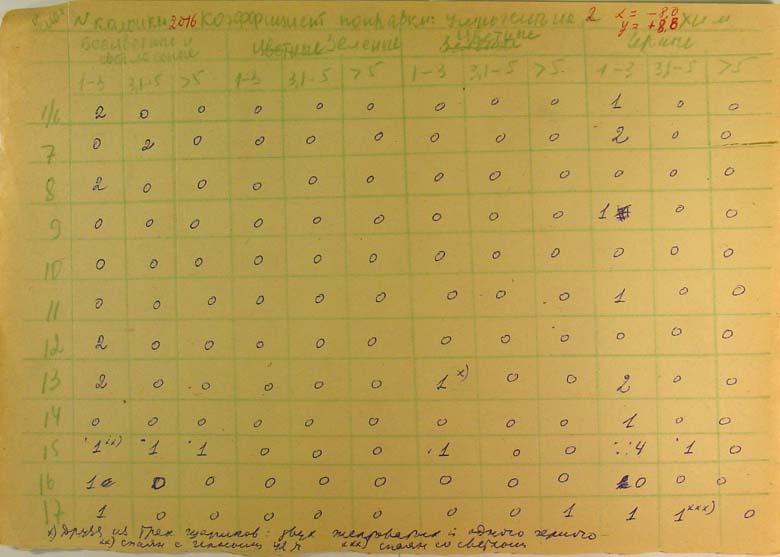 N колонки 2016 Коэффициент поправки: умножить на 2 x = -8,0
y = +8,8
Бесцветные и Цветные Зеленые Цветные Черные
светло
1-3 3,1-5 >5 1-3 3,1-5 >5 1-3 3,1-5 >5 1-3 3,1-5 >5
1/6 2 0 0 0 0 0 0 0 0 1 0 0
7 0 2 0 0 0 0 0 0 0 2 0 0
8 2 0 0 0 0 0 0 0 0 0 0 0
9 0 0 0 0 0 0 0 0 0 1 0 0
10 0 0 0 0 0 0 0 0 0 0 0 0
11 0 0 0 0 0 0 0 0 0 1 0 0
12 2 0 0 0 0 0 0 0 0 0 0 0
13 2 0 0 0 0 0 1 x) 0 0 2 0 0
14 0 0 0 0 0 0 0 0 0 1 0 0
15 1 xx) 1 1 0 0 0 1 0 0 4 1 0
16 1 0 0 0 0 0 0 0 0 0 0 0
17 1 0 0 0 0 0 0 0 1 1 1 xxx) 0
x) Друза из трех шариков: двух и одного черного
xx) спаян с xxx) спаян со светлым